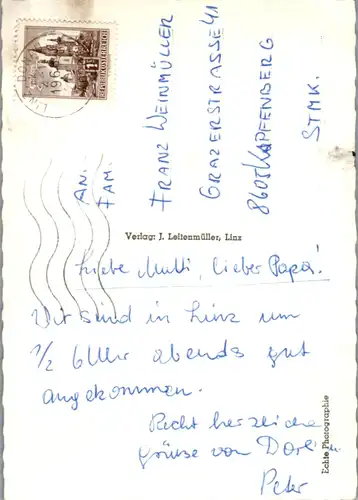 AN
FAM.
FRANZ WEINMÜLLER
GRAZERSTRASSE 41
8605 KAPFENBERG
STMK.
Verlag: J. Leitenmüller, Linz
Liebe Mutti, lieber Papa!
Wir sind in Linz um
1/2 6 Uhr abends gut
angekommen.
Recht herzliche
grüsse von
Peter
Echte Photographie
REPUBLIK ÖSTERREICH
LINZ